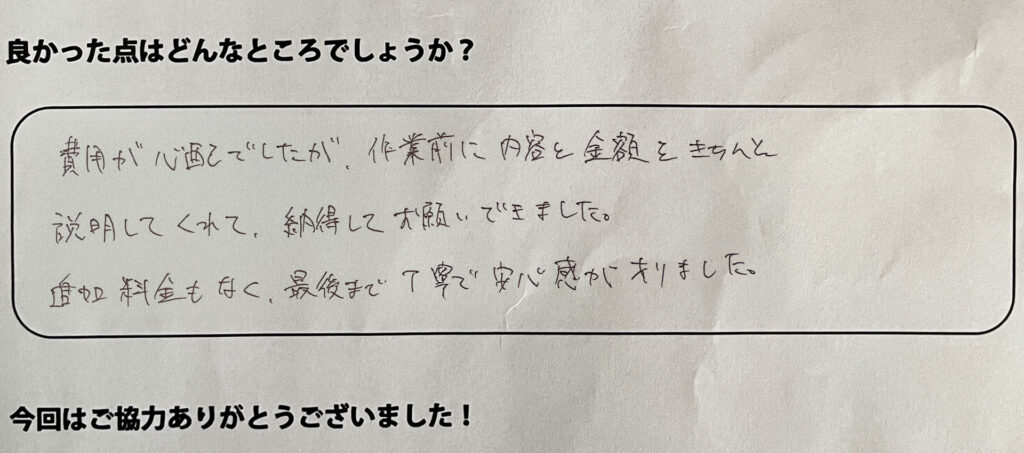 良かった点はどんなところでしょうか？
費用が心配でしたが、作業前に内容と金額をきちんと
説明してくれて、納得してお願いできました。
追加料金もなく、最後まで丁寧で安心感がありました。
今回はご協力ありがとうございました！